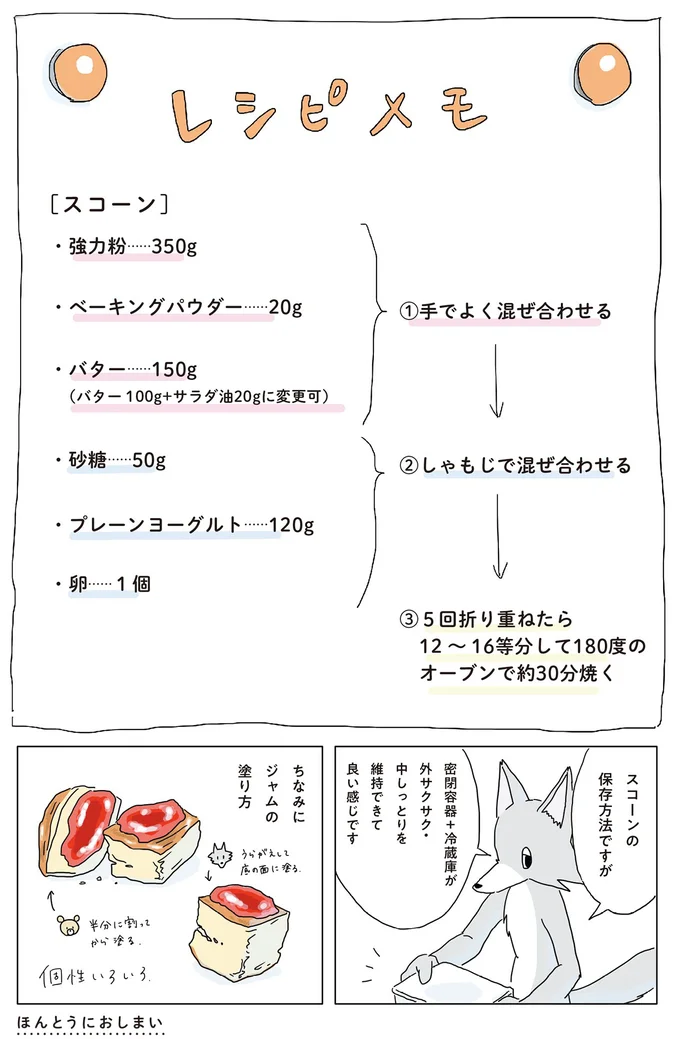 レシピメモ
[スコーン]
・強力粉……350g
・ベーキングパウダー……20g
・バター……150g
（バター100g+サラダ油20gに変更可）
①手でよく混ぜ合わせる
・砂糖……50g
・プレーンヨーグルト……120g
・卵……1個
②しゃもじで混ぜ合わせる
③5回折り重ねたら
12〜16等分して180度の
オーブンで約30分焼く
スコーンの
保存方法ですが
密閉容器+冷蔵庫が
外サクサク・
中しっとりを
維持できて
良い感じです
ちなみに
ジャムの
塗り方
うらがえして
底の面に塗る.
半分に割って
から塗る.
個性いろいろ.
ほんとうにおしまい